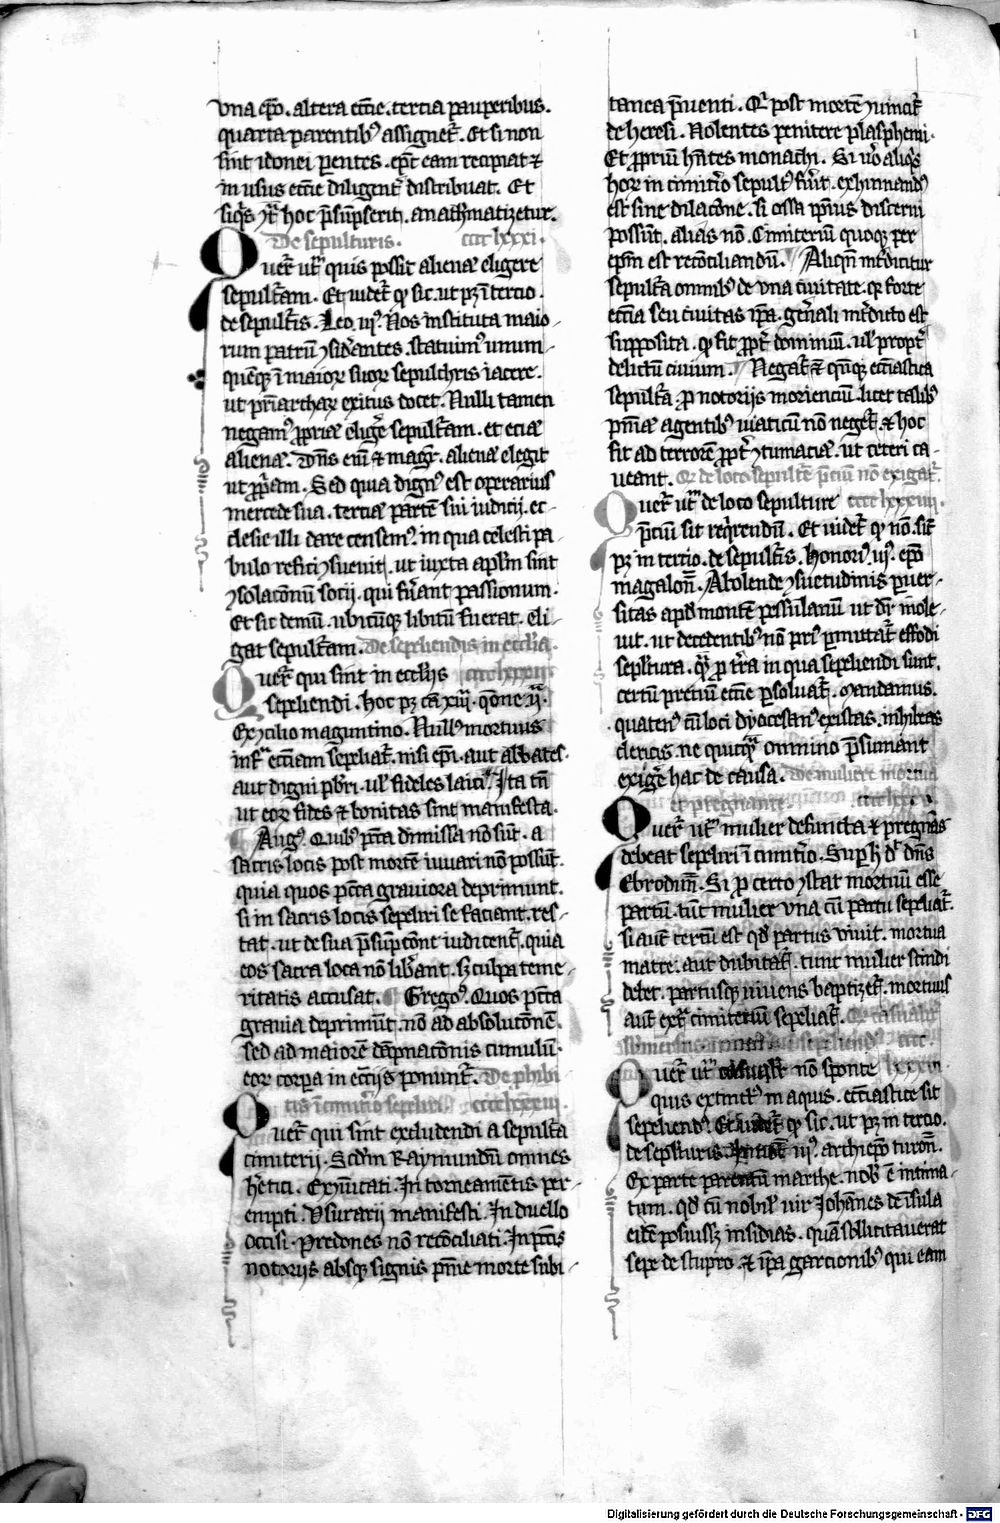 vna ep̄o. altera ecc̄ie. tercia pauperibus.
quarta parentibꝰ assignet᷑. Et si non
sint idonei p̄entes. ep̄c eam recipiat ⁊
in usus ecc̄ie diligent᷑ distribuat. Et
siq̇s ꝯt᷑ hoc p̄sūpserit, anathematizetur.
De sepulturis. cccc lxxxi.
Quer᷑ utꝝ quis possit alienaꝫ eligere
sepult᷑am. Et uidet᷑ ꝙ sic. ut pꝫ ī tercio.
de sepult᷑is. Leo. iijꝰ. Nos instituta maio
rum patrū ꝯsid᷑antes. statuimꝰ unum
quēqꝫ ī maioꝝ suoꝝ sepulchris iacere.
ut p̄riarchaꝝ exitus docet. Nulli tamen
negamꝰ ꝓpriā elig᷑e sepult᷑am. et eciā
alienā. Dn̄s eīm ⁊ magr̄. alienā elegit
ut ꝓpriam. Sed quia dignꝰ est operarius
mercede sua. terciā partē sui iudicij. ec
clesie illi dare censemꝰ. in qua celesti pa
bulo refici ꝯsueuit. ut iuxta aplm̄ sint
ꝯsolac̄onū socij. qui fu᷑ant passionum.
Et sic demū. ubicūqꝫ libitū fuerat. eli
gat sepult᷑am. De sepeliendis in ecclīa.
Quer᷑ qui sint in ecclījs
sepeliendi. hoc pꝫ ca xiij. q̄one ij.
Ex ꝯcilio maguntino. Nullꝰ mortuus
inf᷑ ecc̄iam sepeliat᷑. nisi ep̄i. aut abbates.
aut digni pb̄ri. ul᷑ fideles laici. Ita tn̄
ut eoꝝ fides ⁊ bonitas sint manifesta.
Augꝰ. Quibꝰ pcc̄a dimissa nō sūt. a
sacris locis post mortē iuuari nō possūt.
quia quos pcc̄a grauiora deprimunt.
si in sacris locis sepeliri se faciant. res
tat. ut de sua p̄sūpc̄ont iudicent᷑. quia
eos sacra loca nō lib᷑ant. sꝫ culpa teme
ritatis accusat. Gregoꝰ. Quos pcc̄a
grauia deprimūt. nō ad absoluc̄onē.
sed ad maiorē dāpnac̄onis cumulū.
eoꝝ corpa in ecc̄ijs ponunt᷑. De phibi
tis ī cimit᷑io sepeliri. cccc lxxxiij.
Quer᷑ qui sint excludendi a sepult᷑a
cimiterij. Scdm̄ Raymundū omnes
h᷑etici. Exꝯīcati. In torneamētis per
empti. Vsurarij manifesti. In duello
occisi. Predones nō recōciliati. In pcc̄is
notorijs absqꝫ signis pn̄ie morte subi
tanea p̄uenti. Qͥ post mortē ꝯuincūt᷑
de heresi. Nolentes penitere plasphemi.
Et ꝓpriū hn̄tes monachi. Si uo᷑ aliq̇s
hoꝝ in cimit᷑io sepultꝰ fu᷑it. exhumandꝰ
est sine dilac̄one. si ossa ipīus discerni
possūt. alias nō. Cimiteriū quoqꝫ per
ep̄m est recōciliandū. Aliqn̄ int᷑dicitur
sepult᷑a omnibꝰ de vna ciuitate. ꝙ forte
ecc̄ia seu ciuitas ip̄a. gen᷑ali int᷑dicto est
supposita. ꝙ fit ꝓpt᷑ dominiū. ul᷑ propt᷑
delictū ciuium. Negat᷑ ⁊ qn̄qꝫ ecc̄iastica
sepult᷑a ꝓ notorijs moriencīu. licet talibꝰ
pn̄iaꝫ agentibꝰ uiaticū nō neget᷑. ⁊ hoc
fit ad terrorē ꝓpt᷑ ꝯtumaciā. ut ceteri ca
ueant. Qꝫ de loco sepult᷑e p̄ciū nō exigat᷑.
Quer᷑ utꝝ de loco sepulture cccc lxxxiiij.
p̄ciū sit reqrendū. Et uidet᷑ ꝙ nō. sic᷑
pꝫ in tercio. de sepult᷑is. Honoriꝰ. iijꝰ. ep̄o
magalon̄. Abolende ꝯsuetudinis ꝑuer
sitas apd̄ montē pessulanū ut dr̄ inole
uit. ut decedentibꝰ nō priꝰ ꝑmittat᷑ effodi
sepl᷑tura. qͣꝫ ꝓ t᷑ra in qua sepeliendi sunt.
certū precium ecc̄ie ꝑsoluat᷑. Mandamus.
quatenꝰ cū loci dyocesanꝰ existas. inhibeas
clericis. ne quicqͣꝫ omnino p̄sumant
exig᷑e hac de causa. De muliere mortua
et pregnante. cccc lxxxv.
Quer᷑ utꝝ mulier defuncta ⁊ pregnās
debeat sepeliri ī cimit᷑io. Suꝑ hͦ dt᷑ dn̄s
Ebrodun̄. Si ꝓ certo ꝯstat mortuū esse
partū. tūc mulier vna cū partu sepeliat᷑.
si aut̄ certū est qd̄ partus viuit. mortua
matre. aut dubitat᷑. tunc mulier scindi
debet. partusqꝫ viuens baptizet᷑. mortuus
aut̄ ext᷑ cimiterium sepeliat᷑. Qꝫ casualit᷑
submersus sepeliendꝰ. cccc.
Quer᷑ utꝝ casualit᷑ nō sponte lxxxvi.
quis extinctꝰ in aquis. ecc̄iastice sit
sepeliendꝰ. Et uidet᷑ ꝙ sic. ut pꝫ in tercio.
de sepulturis. iijꝰ. archiep̄o turon̄.
Ex parte parentū marthe. nobꝰ ē intima
tum. qd̄ cū nobil᷑ uir Johānes de īsula
eidē posuissꝫ insidias. quā sollicitauerat
sepe de stupro. ⁊ ip̄a garcionibꝰ qui eam